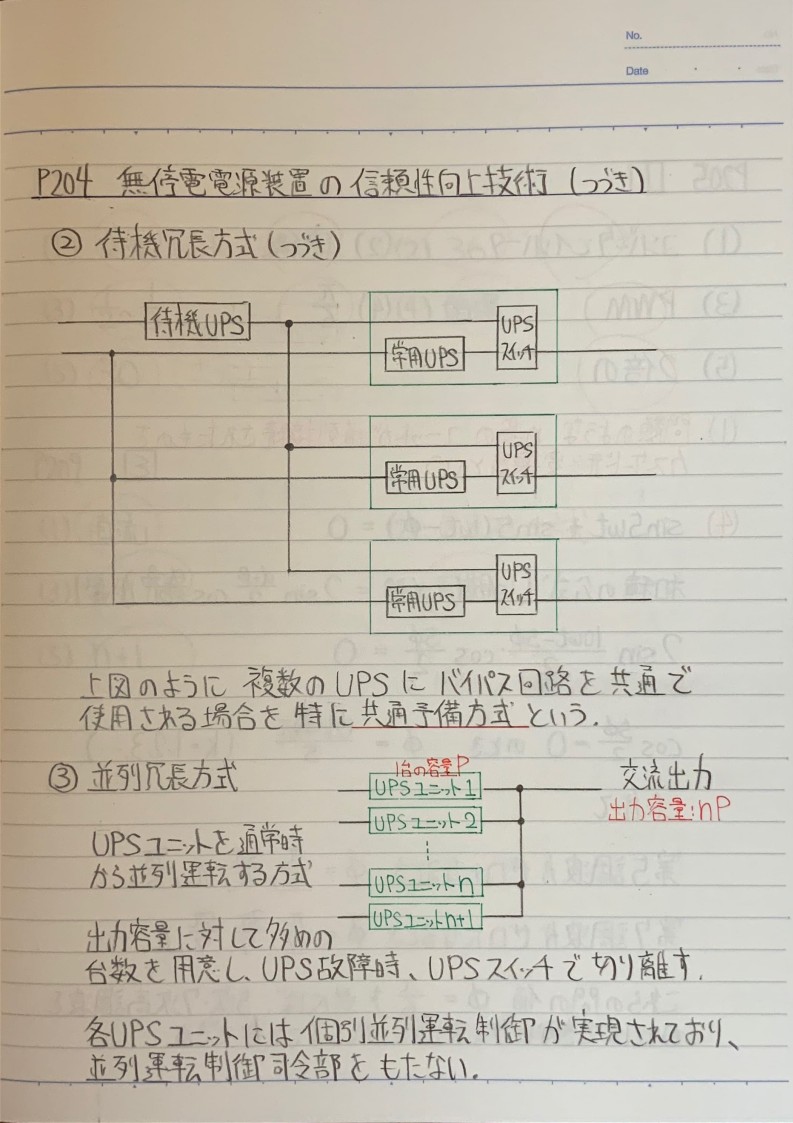 No.
Date
P204 無停電電源装置の信頼性向上技術 (つづき)
② 待機冗長方式 (つづき)
待機UPS
UPS
スイッチ
常用UPS
UPS
スイッチ
常用UPS
UPS
スイッチ
常用UPS
上図のように 複数のUPSに バイパス回路を共通で
使用される場合を 特に 共通予備方式 という.
③ 並列冗長方式
1台の容量P
UPSユニット1
交流出力
出力容量:nP
UPSユニット2
UPSユニットを通常時
から並列運転する方式
UPSユニットn
UPSユニットn+1
出力容量に対して多めの
台数を用意し、UPS故障時、UPSスイッチで切り離す.
各UPSユニットには個別並列運転制御が実現されており、
並列運転制御司令部をもたない.